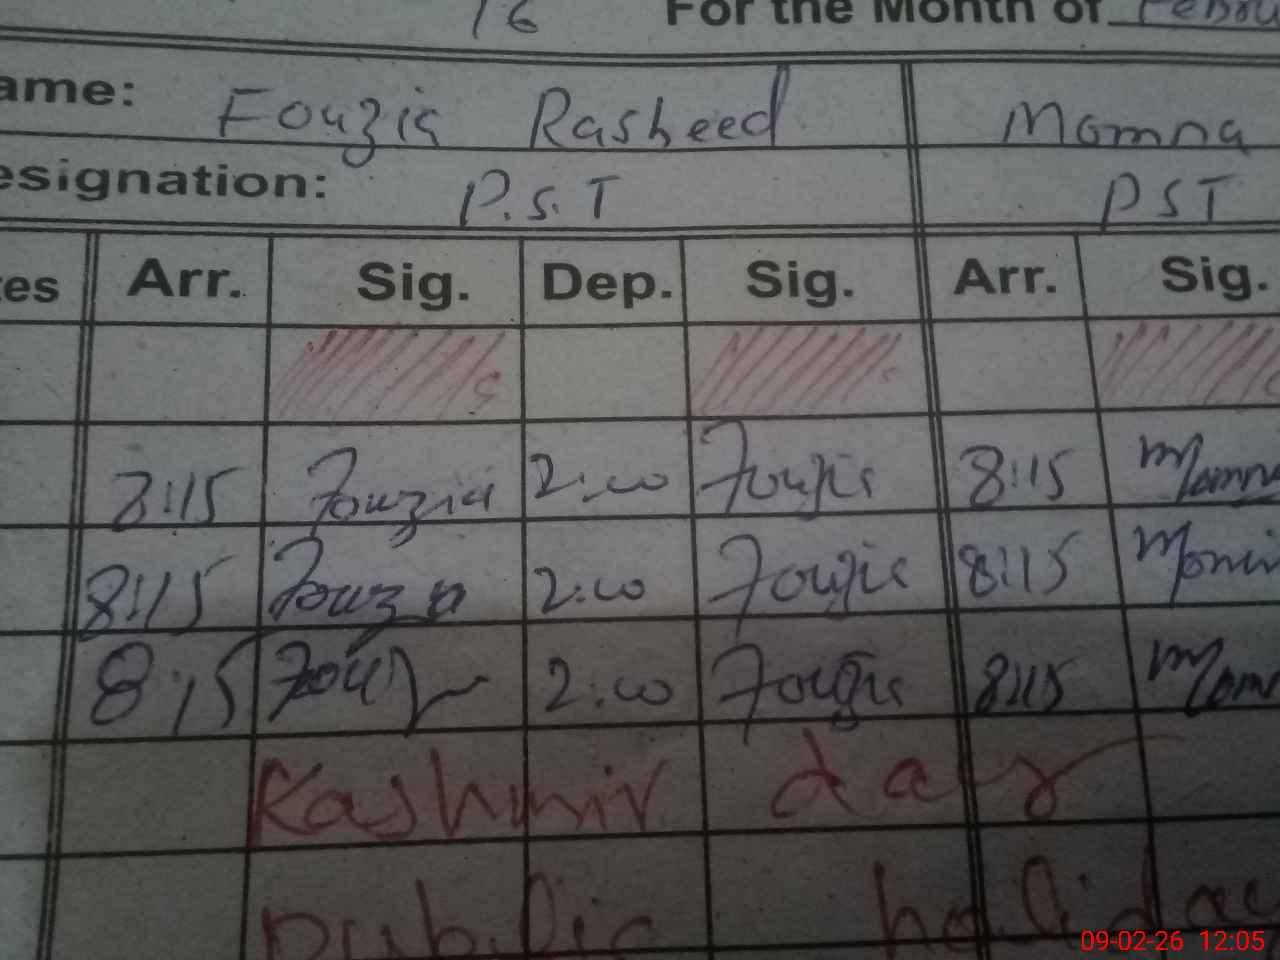 16 For the Month of Febru
ame: Fouzia Rasheed Momna
esignation: P.S.T PST
tes Arr. Sig. Dep. Sig. Arr. Sig.
8:15 Fouzia 2:00 Fouzia 8:15 Momna
8:15 Fouzia 2:00 Fouzia 8:15 Momin
8:15 Fouz 2:00 Fouzia 8:15 Mom
Kashmir day
Public holiday
09-02-26 12:05